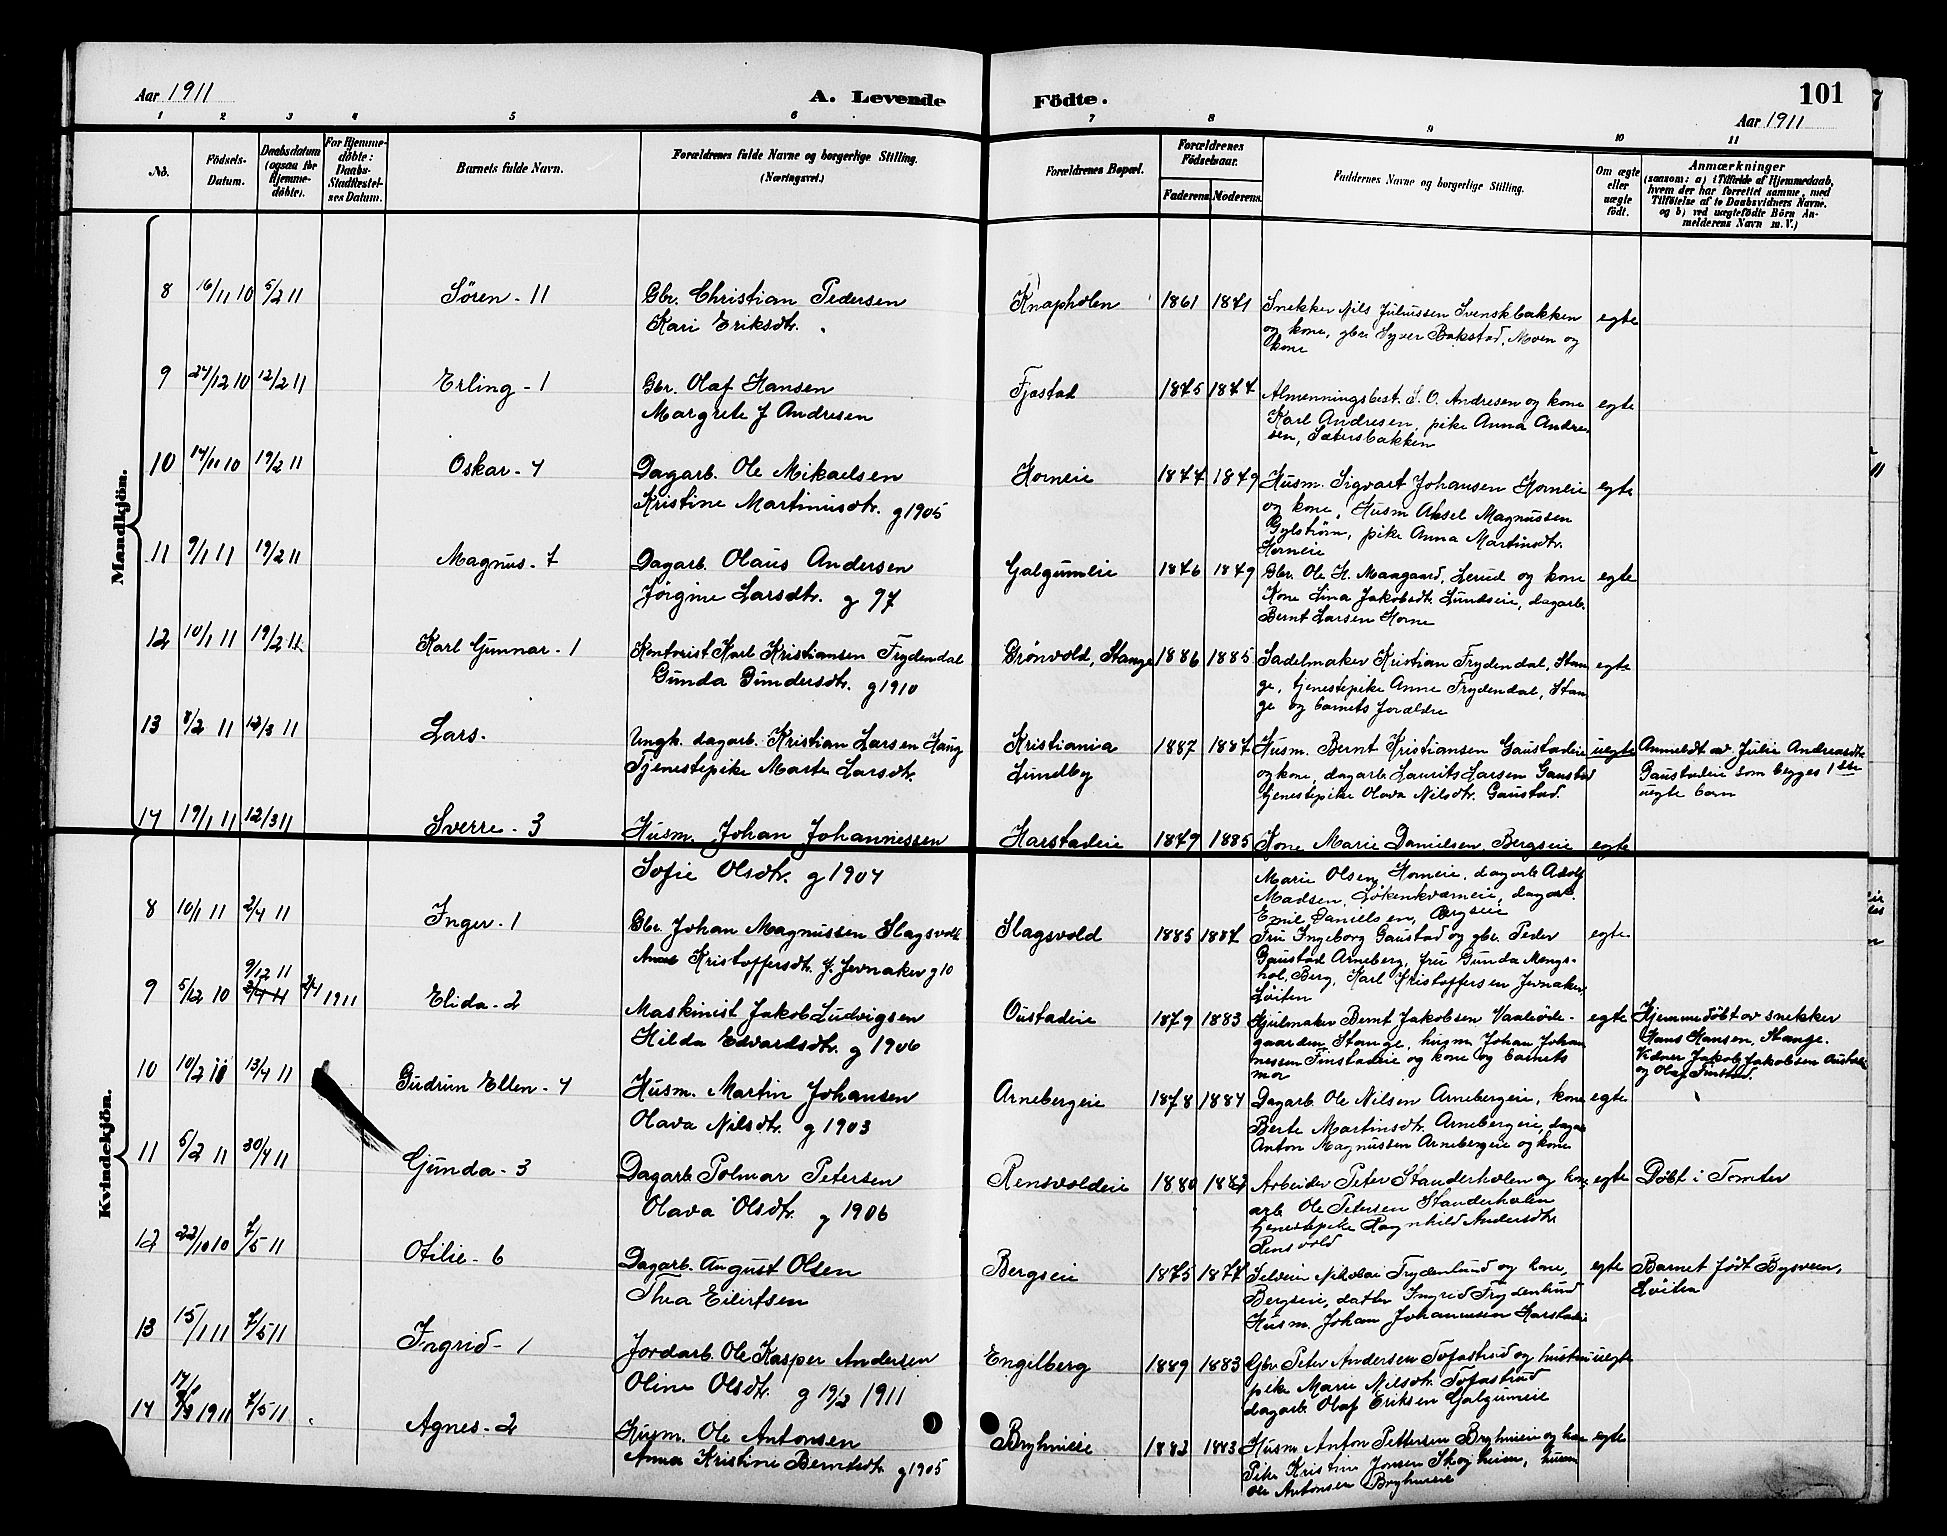 Aar 1911
A. Levende Födte.
101
Aar 1911
1 2 3 4 5 6 7 8 9 10 11
No.
Födsels-Datum.
Daabsdatum (ogsaa for Hjemmedöbte).
For Hjemmedöbte: Daabs-Stadfæstelses Datum.
Barnets fulde Navn.
Forældrenes fulde Navne og borgerlige Stilling.
(Næringsvei.)
Forældrenes Bopæl.
Forældrenes Födselsaar.
Faderens. Moderens.
Faddernes Navne og borgerlige Stilling.
Om ægte eller uægte födt.
Anmærkninger
(saasom: a) i Tilfælde af Hjemmedaab,
hvem der har forrettet samme, med
Tilföielse af to Daabsvidners Navne,
og b) ved uægtefödte Börn An-
melderens Navn m. V.)
Mandkjön.
8 16/11 10 5/2 11 Søren - 11 Gbr. Christian Pedersen Knapholen 1861 1871 Snekker Nils Juliussen Svenskbakken egte
Kari Eriksdtr. og kone, gbr. Syver Bakstad, Moen og
kone
9 27/12 10 12/2 11 Erling - 1 Gbr. Olaf Hansen Fjøstad 1875 1877 Almenningsbest. S. O. Andresen og kone egte
Margrete J Andresen Karl Andresen, pike Anna Andre-
sen, Sætersbakken
10 14/11 10 19/2 11 Oskar - 4 Dagarb. Ole Mikaelsen Horneie 1877 1879 Husm. Sigvart Johansen Horneie egte
Kristine Martinusdtr. g 1905 og kone, Husm Aksel Magnussen
Gylstrøm, pike Anna Martinsdtr.
Horneie
11 9/1 11 19/2 11 Magnus - 7 Dagarb. Olaus Andersen Galgumeie 1876 1879 Gbr. Ole H. Maagaard, Lerud og kone egte
Jørgine Larsdtr. g 97 Kone Lina Jakobsdt. Lundseie, dagarb.
Bernt Larsen Horne
12 10/1 11 19/2 11 Karl Gunnar - 1 Kontorist Karl Kristiansen Frydendal Grönvold, Stange 1886 1885 Sadelmaker Kristian Frydendal, Stan- egte
Gunda Gundersdtr. g 1910 ge, tjenestepike Anne Frydendal, Stan-
ge og barnets forældre
13 8/2 11 12/3 11 Lars. Ungk. dagarb. Kristian Larsen Haug Kristiania 1887 1887 Husm. Bernt Kristiansen Gaustadeie uegte Anmeldt av Julie Andreasdtr.
Tjenestepike Marte Larsdtr. Lundby og kone, dagarb. Laurits Larsen Gaustad Gaustadeie som begges 1ste
tjenestepike Olava Nilsdtr. Gaustad. uegte barn
14 19/1 11 12/3 11 Sverre - 3 Husm. Johan Johannessen Harstadeie 1879 1885 Kone Marie Danielsen, Bergseie egte
Sofie Olsdtr. g 1904 Marie Olsen Horneie, dagarb. Adolf
Madsen, Løkenkværneie, dagarb.
Emil Danielsen, Bergseie
Kvindekjön.
8 10/1 11 2/4 11 Inger - 1 Gbr. Johan Magnussen Slagsvold Slagsvold 1885 1887 Fru Ingeborg Gaustad og gbr. Peder egte
Kristoffersdtr. f. Jevnaker g 10 Gaustad Arneberg, fru Gunda Mengs-
hol, Berg, Karl Kristoffersen Jevnaker,
Løiten
9 5/12 10 9/12 11 2/4 11 2/4 1911 Elida - 2 Maskinist Jakob Ludvigsen Oustadeie 1879 1883 Hjulmaker Bernt Jakobsen Vaaløde- egte Hjemmedøbt av snekker
Hilda Edvardsdtr. g 1906 gaarden, Stange, husm. Johan Johan- Hans Hansen, Stange.
nessen Finstadeie og kone og barnets Vidner Jakob Jakobsen Oustadeie
mor og Olaf Finstad.
10 10/2 11 13/4 11 Gudrun Ellen - 4 Husm. Martin Johansen Arnebergeie 1878 1884 Dagarb. Ole Nilsen Arnebergeie, kone egte
Olava Nilsdtr. g 1903 Berte Martinsdtr. Arnebergeie, dagarb
Anton Magnussen Arnebergeie og kone
11 5/2 11 30/4 11 Gunda - 3 Dagarb. Polmar Petersen Rensvoldeie 1880 1882 Arbeider Peter Standerholen og kone egte Døbt i Tomter
Olava Olsdtr. g 1906 arb Ole Petersen Standerholen
tjenestepike Ragnhild Andersdtr.
Rensvold
12 22/10 10 7/5 11 Otilie - 6 Dagarb. August Olsen Bergseie 1875 1877 Selveier Nikolai Frydenlund og kone, egte Barnet født Bysveen,
Thea Eilertsen Bergseie, datter Ingrid Frydenlund Løiten
Husm. Johan Johannessen Harstadeie
13 15/1 11 7/5 11 Ingrid - 1 Jordarb. Ole Kasper Andersen Engilberg 1889 1883 Gbr. Peter Andersen Tofastrud og hustru uegte
Oline Olsdtr. g 19/2 1911 pike Marie Nilsdtr. Tofastrud
dagarb. Olaf Eriksen Galgumeie
14 1911 7/5 11 Agnes - 2 Husm. Ole Antonsen Bryhnieie 1882 1883 Husm Anton Pettersen Bryhnieie og kone egte
Anna Kristine Berntsdtr. g 1905 Pike Kristine Jonsen Skogheim, husm
Ole Antonsen Bryhnieie